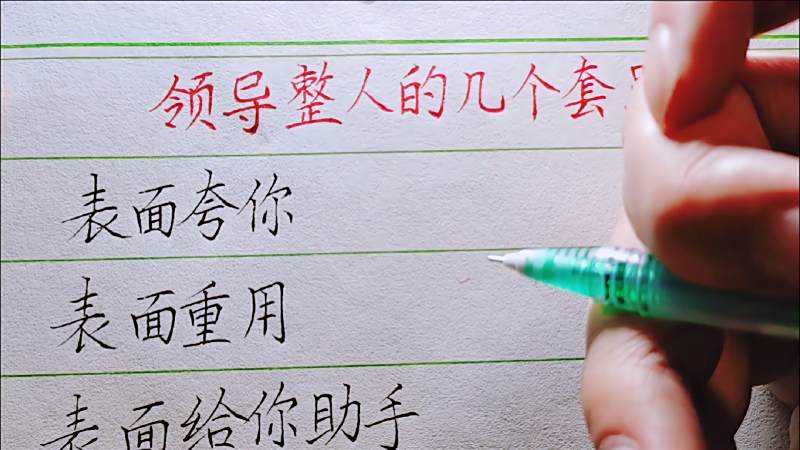 领导整人的几个套
表面夸你
表面重用
表面给你助手